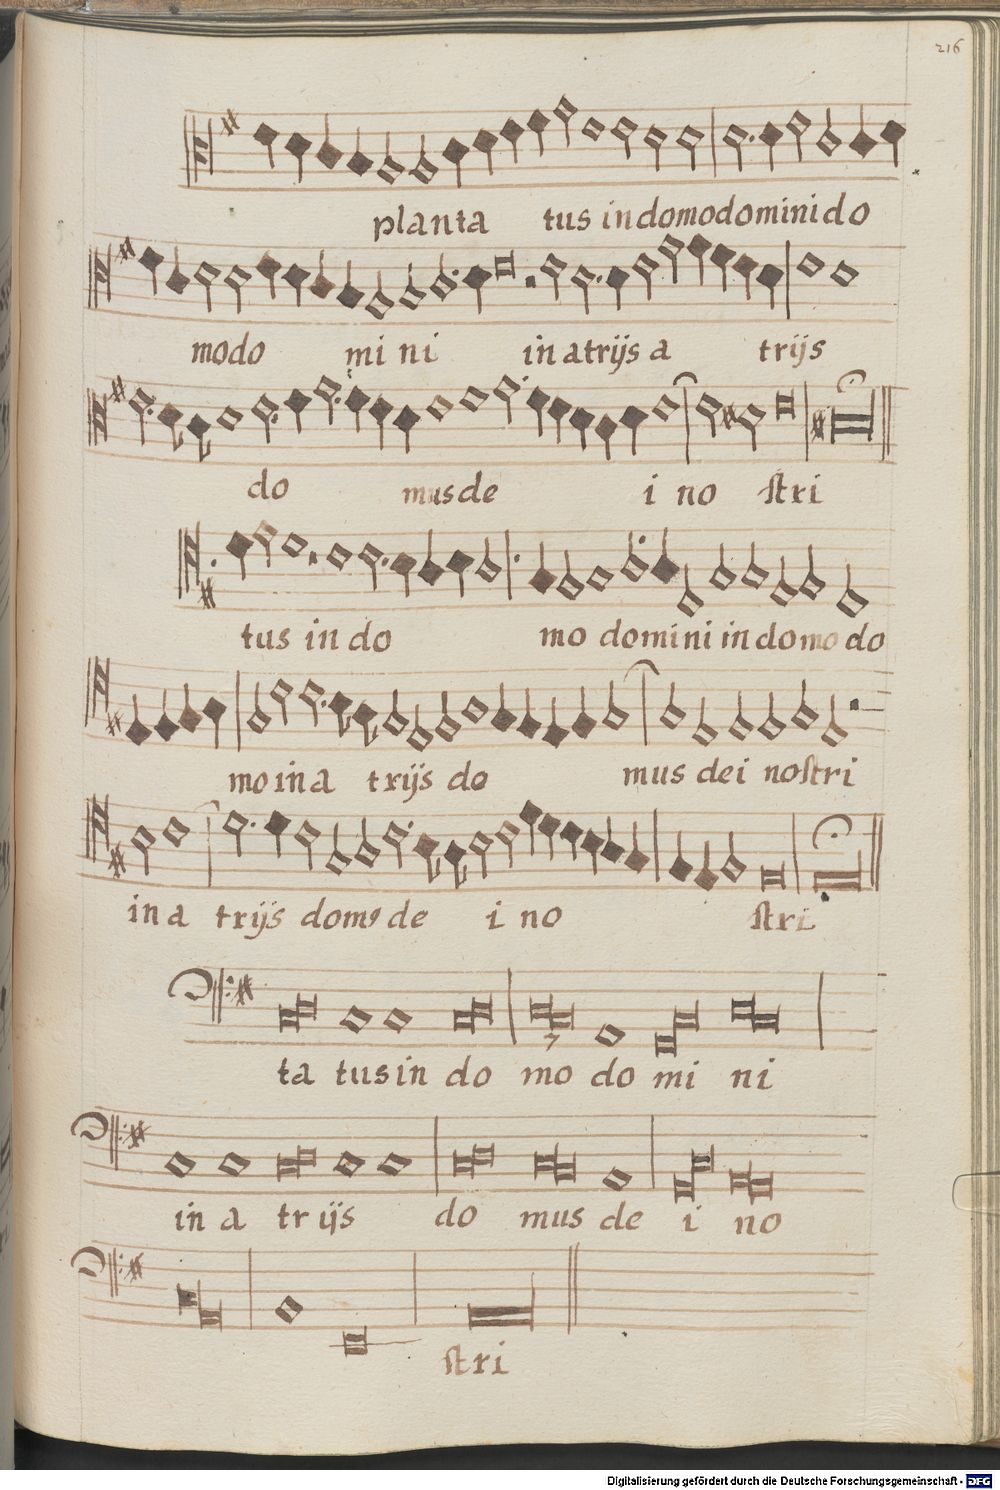 216
planta tus indomodominido
modo mi ni in atrijs a trijs
do musde i no stri
tus in do mo domini indomo do
mo in a trijs do mus dei nostri
in a trijs domꝰ de i no stri
ta tus in do mo do mi ni
in a trijs do mus de i no
stri
Digitalisierung gefördert durch die Deutsche Forschungsgemeinschaft - DFG